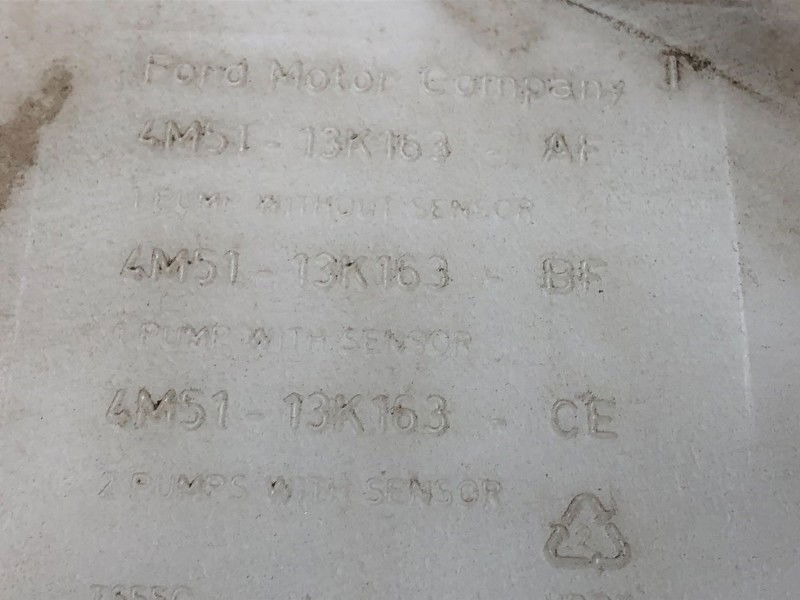 Ford Motor Company
4M51 - 13K163 - AF
1 PUMP WITHOUT SENSOR
4M51 - 13K163 - BF
1 PUMP WITH SENSOR
4M51 - 13K163 - CE
2 PUMPS WITH SENSOR